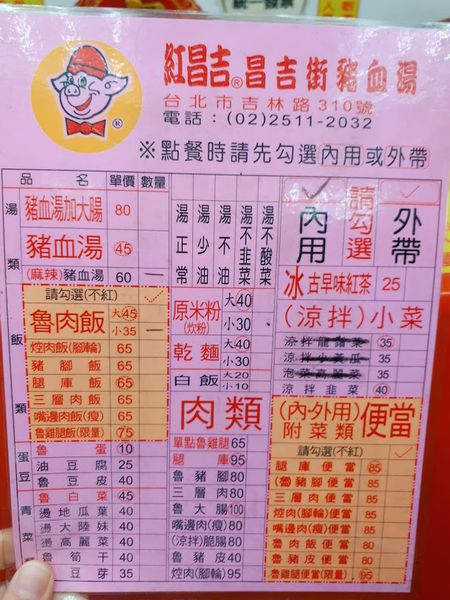 統一發票
紅昌吉®昌吉街豬血湯
台北市吉林路310號
電話：(02)2511-2032
※點餐時請先勾選內用或外帶
品名 單價 數量
湯類
豬血湯加大腸 80
豬血湯 45
(麻辣)豬血湯 60
飯類
請勾選(不紅)
魯肉飯 大45 小35
焢肉飯(腳輪) 65
豬腳飯 65
腿庫飯 65
三層肉飯 65
嘴邊肉飯(瘦) 65
魯雞腿飯(限量) 75
蛋豆
魯蛋 10
油豆腐 25
魯豆皮 40
青菜
魯白菜 45
燙地瓜葉 40
燙大陸妹 40
燙高麗菜 40
魯筍干 40
豆芽 35
湯正常
湯少油
湯不油
湯不韭菜
湯不酸菜
原米粉(炊粉) 大40 小30
乾麵 大40 小30
白飯 大20 小10
肉類
單點魯雞腿 65
腿庫 95
魯豬腳 80
三層肉 80
魯大腸 100
嘴邊肉(瘦) 80
(涼拌)脆腸 80
魯豬皮 40
焢肉(腳輪) 95
內用
請勾選
外帶
冰古早味紅茶 25
(涼拌)小菜
涼拌龍鬚菜 35
涼拌小黃瓜 35
泡菜高麗菜 35
涼拌韭菜 40
(內·外用)便當
附菜類
請勾選(不紅)
腿庫便當 85
(魯)豬腳便當 85
三層肉便當 85
焢肉(腳輪)便當 85
嘴邊肉(瘦)便當 85
魯肉飯便當 80
魯豬皮便當 80
魯雞腿便當(限量) 95